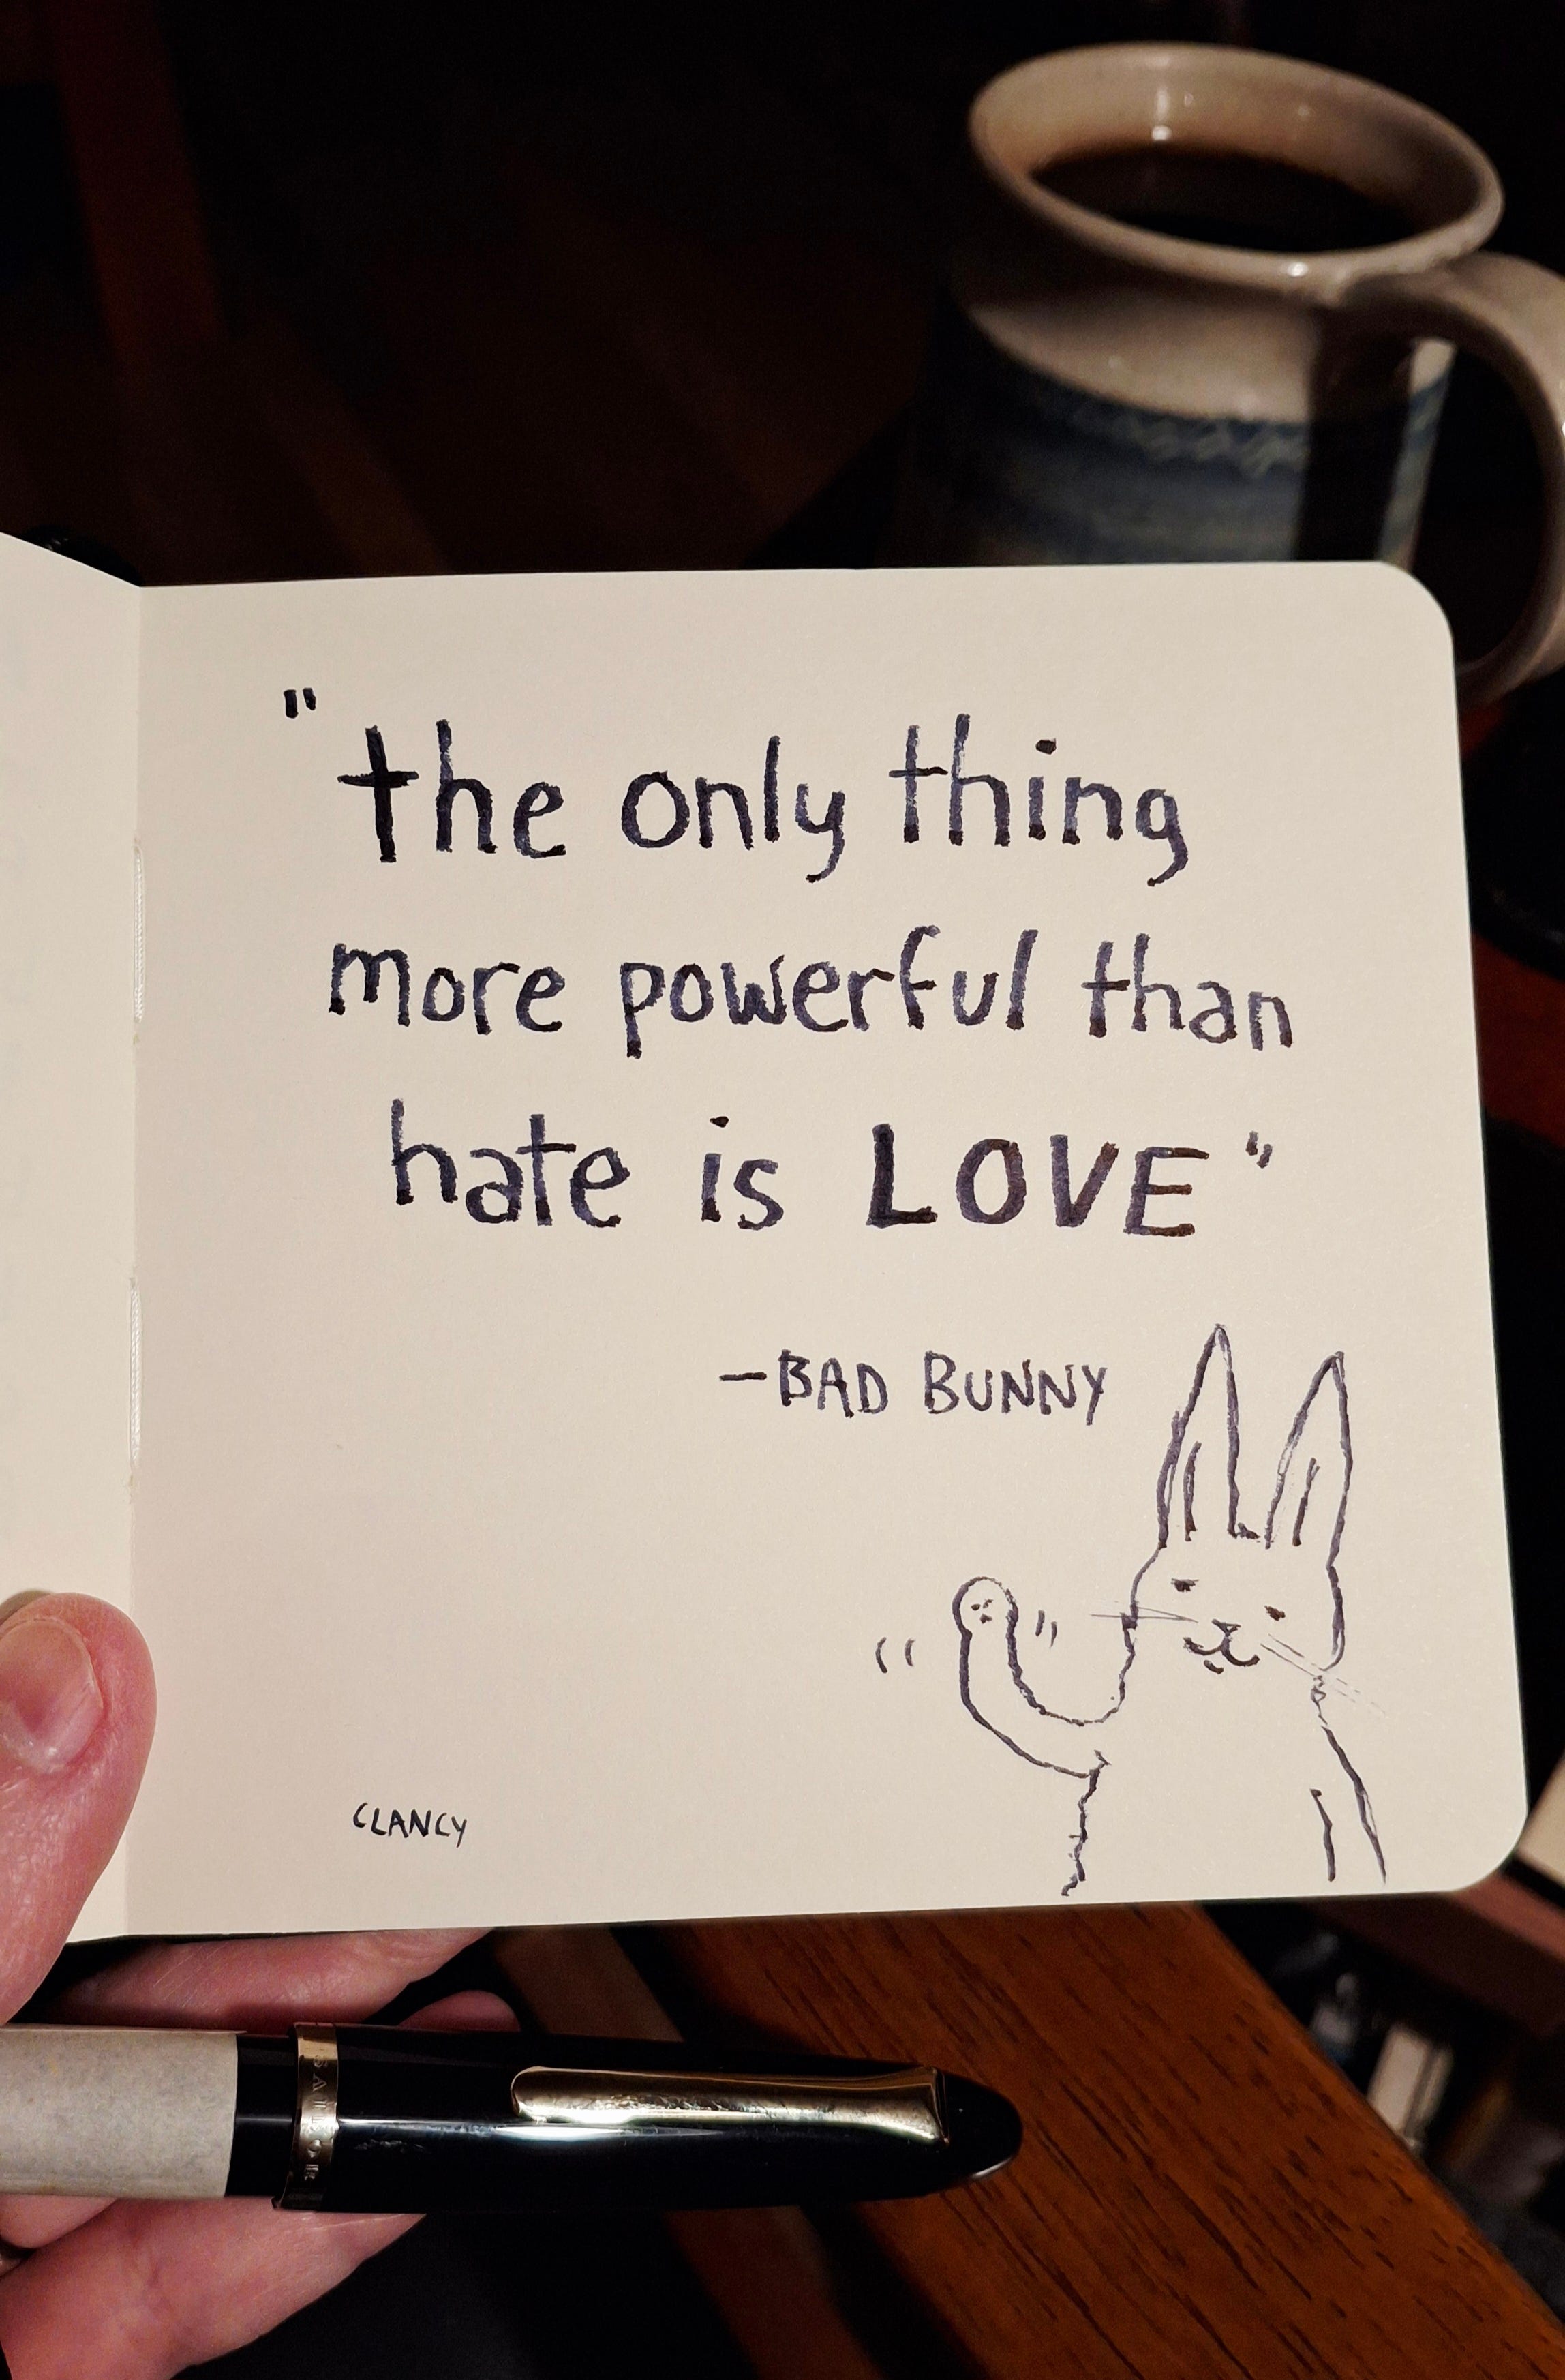 "the only thing
more powerful than
hate is LOVE"
—BAD BUNNY
CLANCY
SAILOR